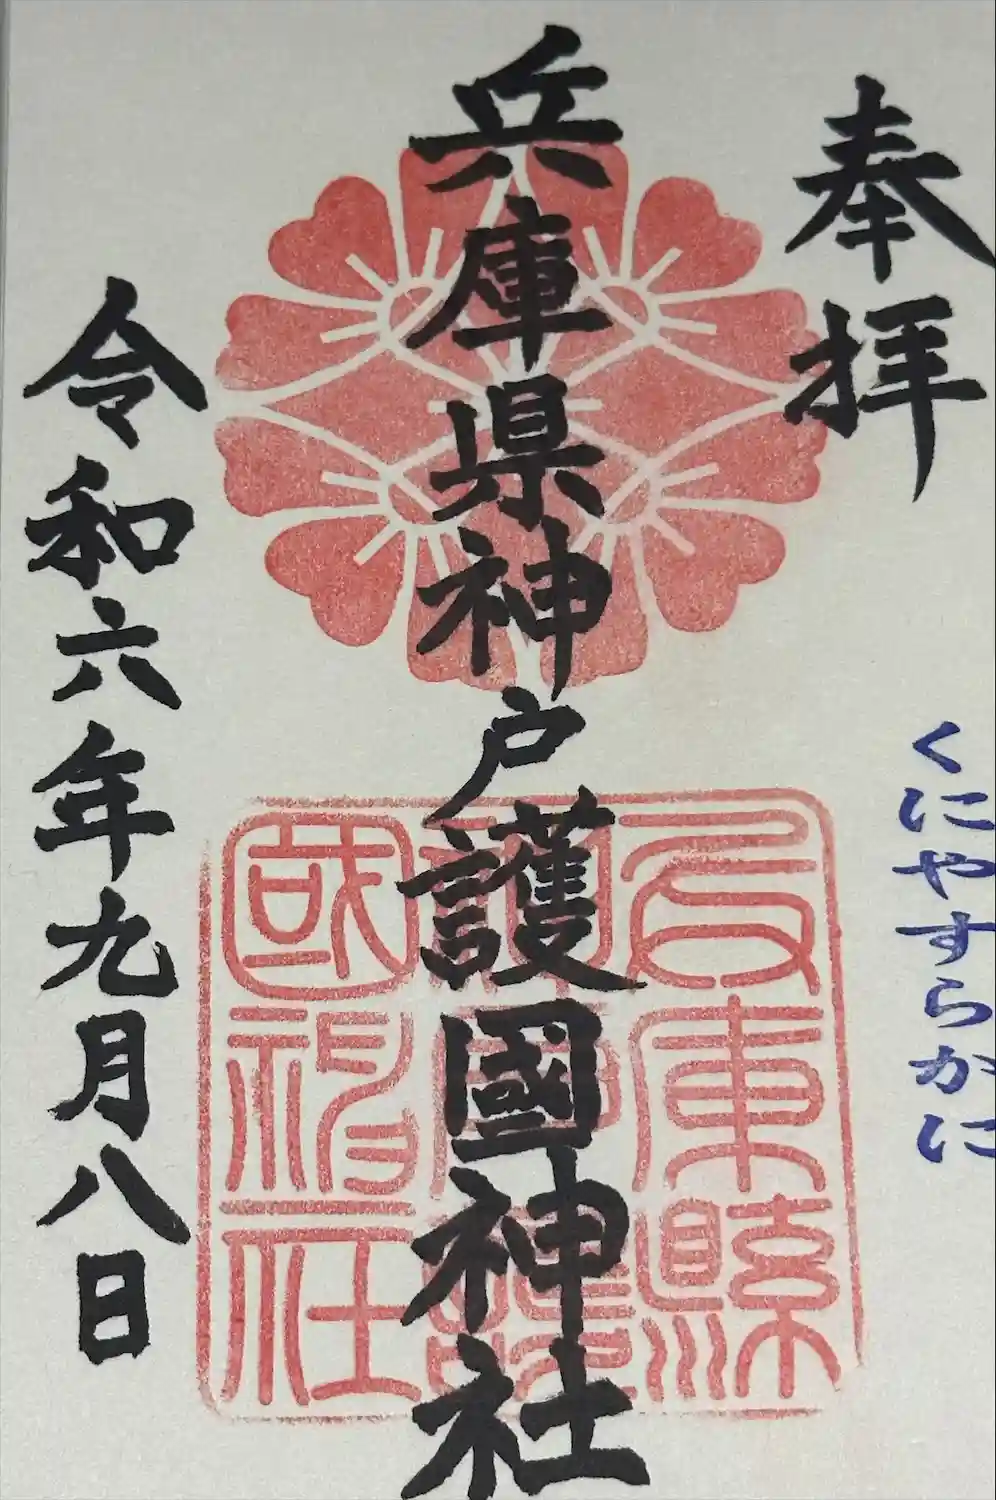 奉拝
くにやすらかに
兵庫県神戸護國神社
兵庫縣神戸護國神社
令和六年九月八日